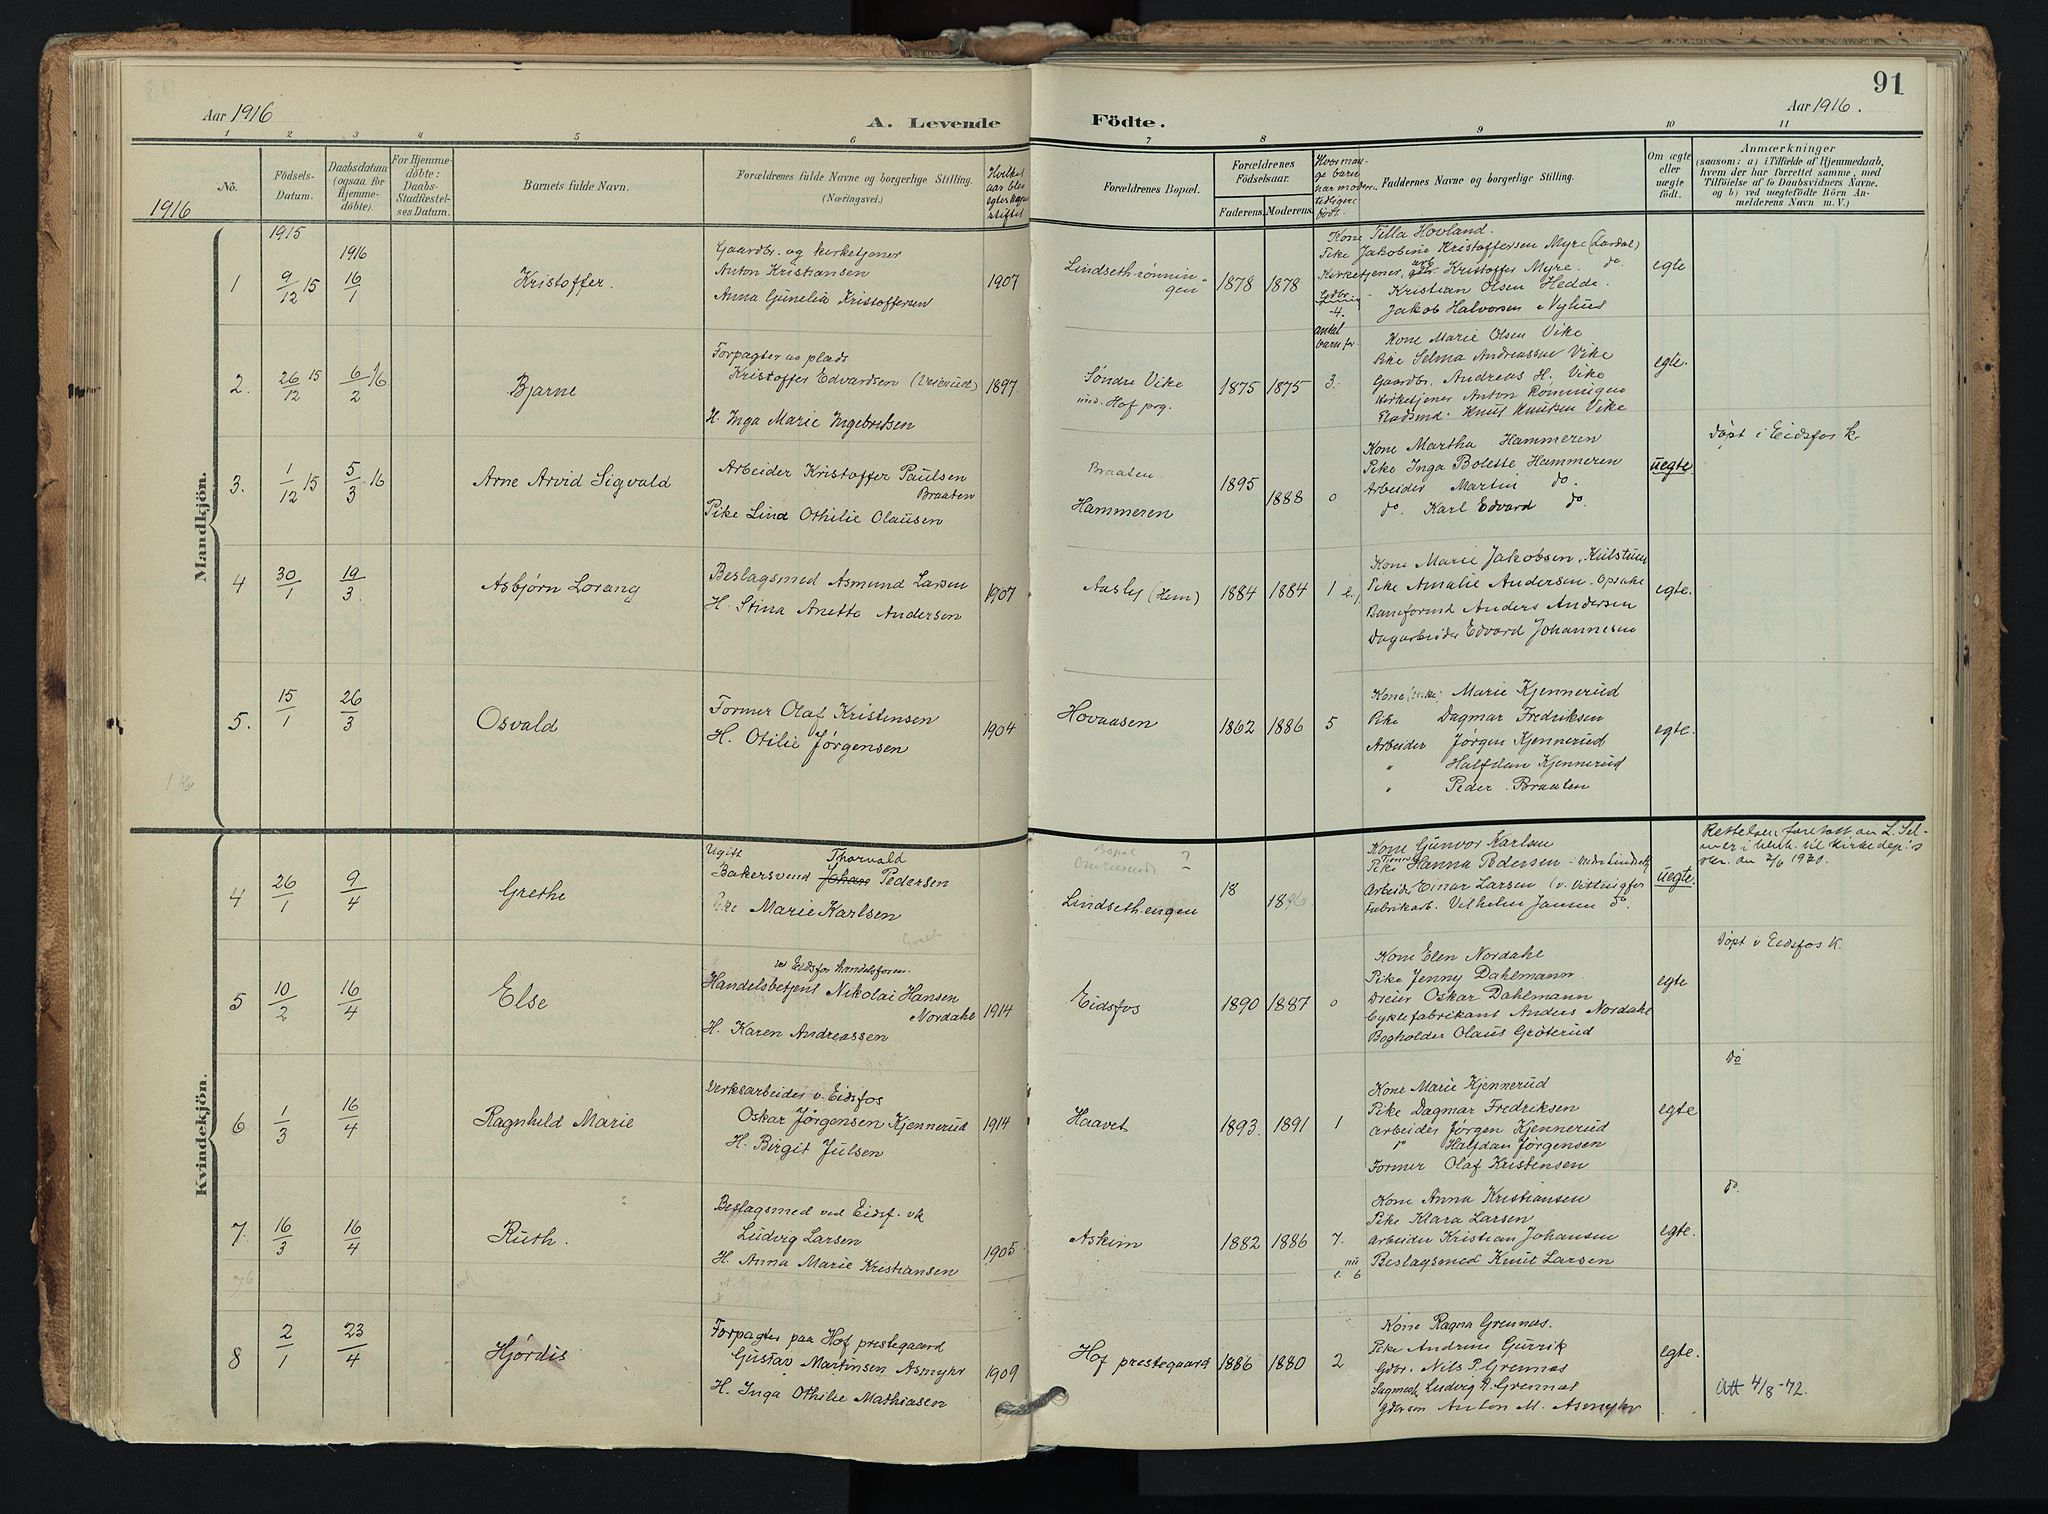 91
Aar 1916
A. Levende
Födte.
Aar 1916.
1 2 3 4 5 6 7 8 9 10 11
No.
Födsels-Datum.
Daabsdatum (ogsaa for Hjemmedöbte).
For Hjemmedöbte: Daabs-Stadfæstelses Datum.
Barnets fulde Navn.
Forældrenes fulde Navne og borgerlige Stilling.
(Næringsvei.)
Hvilket aar blev egteskapet stiftet
Forældrenes Bopæl.
Forældrenes Födselsaar.
Faderens. Moderens.
Hvor mange barn har moderen tidligere født.
Faddernes Navne og borgerlige Stilling.
Om ægte eller uægte födt.
Anmærkninger
(saasom: a) i Tilfælde af Hjemmedaab, hvem der har forrettet samme, med Tilföielse af to Daabsvidners Navne, og b) ved uægtefödte Börn Anmelderens Navn m. V.)
1916
Mandkjön.
1915
1916
1
9/12 15
16/1
Kristoffer.
Gaardbr. og kirketjener
Anton Kristiansen
Anna Gunelia Kristoffersen
1907
Lindsethrønningen
1878 1878
4.
antal barn før
Kone Tilla Hovland.
Pike Jakobine Kristoffersen Myre (Lardal)
Kirketjener, Kristoffer Myre. do.
Kristian Olsen Hedde.
Jakob Halvorsen Nylund
egte
2.
26/12 15
6/2 16
Bjarne
Forpagter av plads
Kristoffer Edvardsen
H. Inga Marie Ingebretsen
1897.
Søndre Vike
Hof prg.
1875 1875 3.
Kone Marie Olsen Vike
Pike Selma Andreassen Vike
Gaardbr. Andreas H. Vike
Kirketjener Anton Rønningen
Pladsmd. Knut Knutsen Vike
egte.
3.
1/12 15
5/3 16
Arne Arvid Sigvald
Arbeider Kristoffer Paulsen
Braaten
Pike Lina Othilie Olausen
Braaten.
Hammeren
1895 1888 0
Kone Martha Hammeren
Pike Inga Bolette Hammeren
Arbeider Martin do.
do. Karl Edvard do.
uegte
Døpt i Eidsfos k.
4
30/1
19/3.
Asbjørn Lorang
Beslagsmed Asmund Larsen
H. Stina Anette Andersen
1907
Aasly (Hem)
1884 1884 1
Kone Marie Jakobsen,
Pike Amalie Andersen.
Baneformd Anders Andersen
Dagarbeider Edvard Johannesen
egte.
5.
15/1
26/3
Osvald
Former Olaf Kristensen
H. Otilie Jørgensen
1904
Hovaasen
1862 1886 5
Kone Marie Kjennerud
Pike Dagmar Fredriksen
Arbeider Jørgen Kjennerud
" Halfdan Kjennerud
" Peder Braaten
egte.
Kvindekjön.
4
26/1
9/4
Grethe
Ugift Thorvald
Bakersvend Johan Pedersen
Pike Marie Karlsen
Bopæl ?
Lindsethengen
18
Kone Gunvor Karlsen
Pike Hanna Pedersen
Arbeider Einar Larsen
Fabrikarb. Vilhelm Jansen do.
uegte.
Rettelsen foretatt av L. Selmer i henh. til Kirkedep's
5
10/2
16/4
Else
v. Eidsfos handelsforen.
Handelsbetjent Nikolai Hansen
Nordahl
H. Karen Andreassen
1914
Eidsfos
1890 1887 0
Kone Elen Nordahl
Pike Jenny Dahlmann
Dreier Oskar Dahlmann
Cyklefabrikant Anders Nordahl
Bogholder Olaus Grøterud
egte
Døpt i Eidsfos K.
6
1/3
16/4
Ragnhild Marie
Verksarbeider v. Eidsfos
Oskar Jørgensen Kjennerud
H. Birgit Julsen
1914
Haavet
1893. 1891 1
Kone Marie Kjennerud
Pike Dagmar Fredriksen
Arbeider Jørgen Kjennerud
" Halfdan Jørgensen
Former Olaf Kristensen
egte
do
7.
16/3
16/4
Ruth.
Beslagsmed ved Eidsf. vk
Ludvig Larsen
H. Anna Marie Kristiansen
1905.
Askim
1882 1886 7.
Kone Anna Kristiansen
Pike Klara Larsen
Arbeider Kristian Johansen
Beslagsmed Knut Larsen
egte.
do.
8
2/1
23/4
Hjørdis
Forpagter paa Hof prestegaard
Gustav Martinsen Asmyhr
H. Inga Othilie Mathiasen
1909
Hof prestegaard
1886 1880 2
Kone Ragna Grennes.
Pike Andrine Gurrik
Gdbr. Nils P. Grennes
Ludvig A. Grennes
Anton M. Asmyhr
egte.
Att 4/8-72.